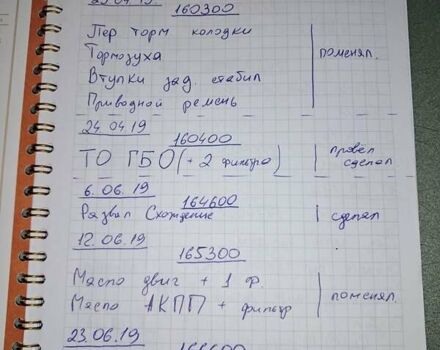 160300
Пер торм колодки
Тормозуха
Втулки зад. стабил
Приводной ремень
поменял.
24.04.19
160400
ТО ГБО (+ 2 фильтра)
провел
сделал
6.06.19
164600
Развал Схождение
сделал
12.06.19
165300
Масло двиг + 1 ф.
Масло АКПП + фильтр
поменял.
23.06.19